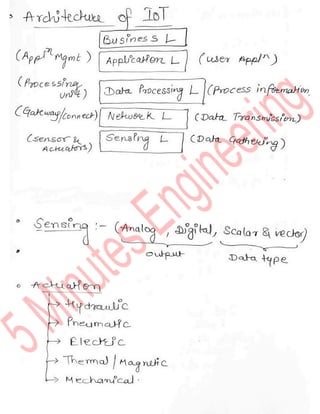 Architecture of IoT
Business L
(Appln Mgmt) Application L (User Appln)
(Processing Unit) Data Processing L (Process information)
(Gateway/connect) Network L (Data Transmission)
(Sensor & Actuators) Sensing L (Data Gathering)
Sensing :- (Analog, Digital, Scalar & vector)
output Data type
Actuation
→ Hydraulic
→ Pneumatic
→ Electric
→ Thermal / Magnetic
→ Mechanical.
5 Minutes Engineering